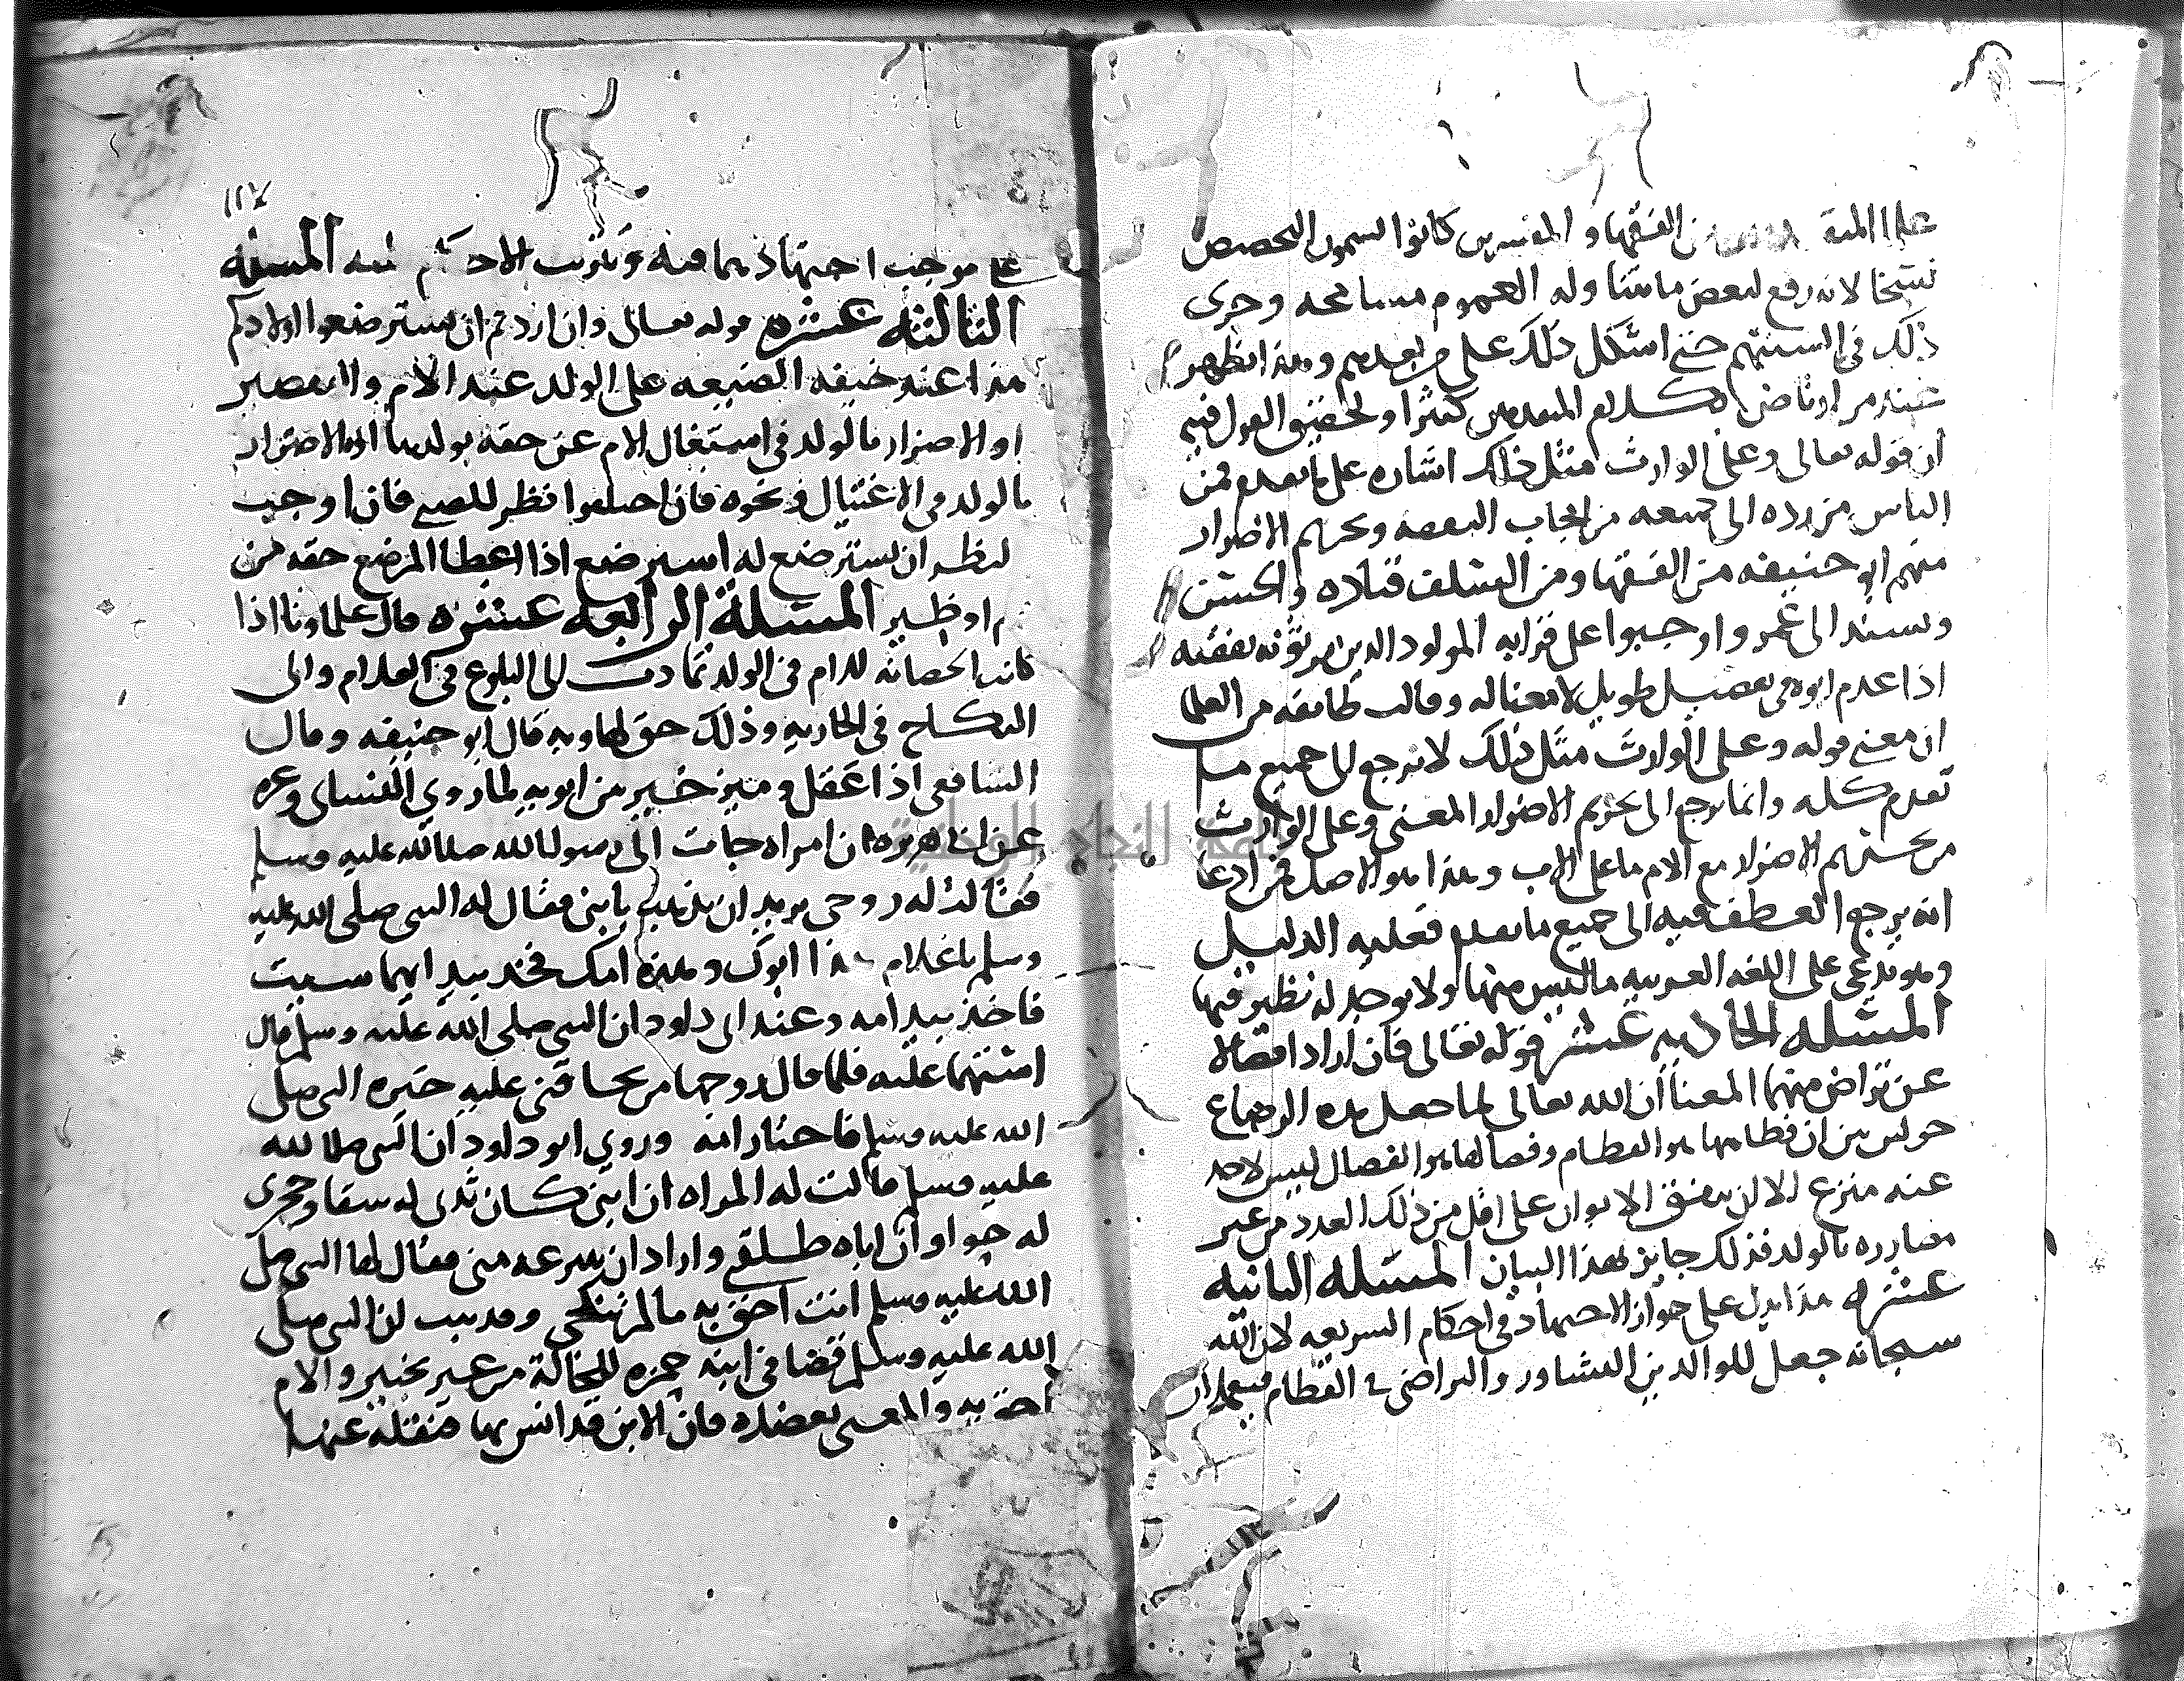 علما المتقدمين من الفقها والمفسرين كانوا يسمون التخصيص
نسخا لانه رفع لبعض ما يتناوله العموم مسامحه وجرى
ذلك في السنتهم حتى اشكل ذلك على من بعدهم وهذا يظهر
عند من ارتاض بكلام المتقدمين كثيرا وتحقيق القول فيه
ان قوله تعالى وعلى الوارث مثل ذلك اشاره على ما تقدم فمن
الناس من رده الى جميعه من ايجاب النفقه وتحريم الاضرار
منهم ابو حنيفه من الفقها ومن السلف قتاده والحسن
وسند الى عمر واوجبوا على قرابه المولود الذين يرثونه نفقته
اذا عدم ابوه في تفصيل طويل لا معنا له وقالت طائفه من العلما
ان معنى قوله وعلى الوارث مثل ذلك لا يرجع الى جميع ما
تقدم كله وانما يرجع الى تحريم الاضرار المعنى وعلى الوارث
من تحريم الاضرار مع الام ما على الاب وهذا هو الاصل فمن ادعا
انه يرجع العطف فيه الى جميع ما تقدم فعليه الدليل
وهو يدعي على اللغه العربيه ما ليس منها ولا يوجد له نظير فيها
المسله الحاديه عشر قوله تعالى فان اراد افصالا
عن تراض منهما المعنا ان الله تعالى لما جعل مده الرضاع
حولين بين ان فطامها هو الفطام وفصالها هو الفصال ليس لاحد
عنه منزع الا ان يتفق الابوان على اقل من ذلك العدد من غير
مضارره بالولد فذلك جايز بهذا البيان المسله الثانيه
عشره هذا يدل على جواز الاجتهاد في احكام الشريعه لان الله
سبحانه جعل للوالدين التشاور والتراضي في الفطام فيعملان
١١٧
على موجب اجتهاد بما فيه وترتب الاحكام عليه المسله
الثالثه عشره قوله تعالى وان اردتم ان تسترضعوا اولادكم
هذا عند خيفه الضيعه على الولد عند الام والتقصير
او الاضرار بالولد في اشتغال الام عن حقه بولدها او الاضرار
بالولد في الاغتيال ونحوه فان اختلفوا نظر للصبي فان اوجب
النظر ان يسترضع له استرضع اذا اعطا المرضع حقه من
ام او ظير المسله الرابعه عشره قال علماونا اذا
كانت الحضانه للام في الولد تمادت الى البلوغ في الغلام والى
النكاح في الجاريه وذلك حق لها وبه قال ابو حنيفه وقال
الشافعي اذا عقل وميز خير بين ابويه لما روى النساي وغيره
عن ابي هريره ان امراه جات الى رسول الله صلى الله عليه وسلم
فقالت له زوجي يريد ان يذهب بابني فقال له النبي صلى الله عليه
وسلم يا غلام هذا ابوك وهذه امك فخذ بيد ايهما شيت
فاخذ بيد امه وعند ابي داود ان النبي صلى الله عليه وسلم قال
استهما عليه فلما قال زوجها من يحاقني عليه خيره النبي صلى
الله عليه وسلم فاختار امه وروى ابو داود ان النبي صلى الله
عليه وسلم قالت له المراه ان ابني كان ثدى له سقا وحجرى
له حوا وان اباه طلقني واراد ان ينزعه مني فقال لها النبي صلى
الله عليه وسلم انت احق به ما لم تنكحي وقد ثبت ان النبي صلى
الله عليه وسلم قضا في ابنه حمزه للخالة من غير تخيير والام
احق به والمعنى يعضده فان الابن قد انس بها فنقله عنها